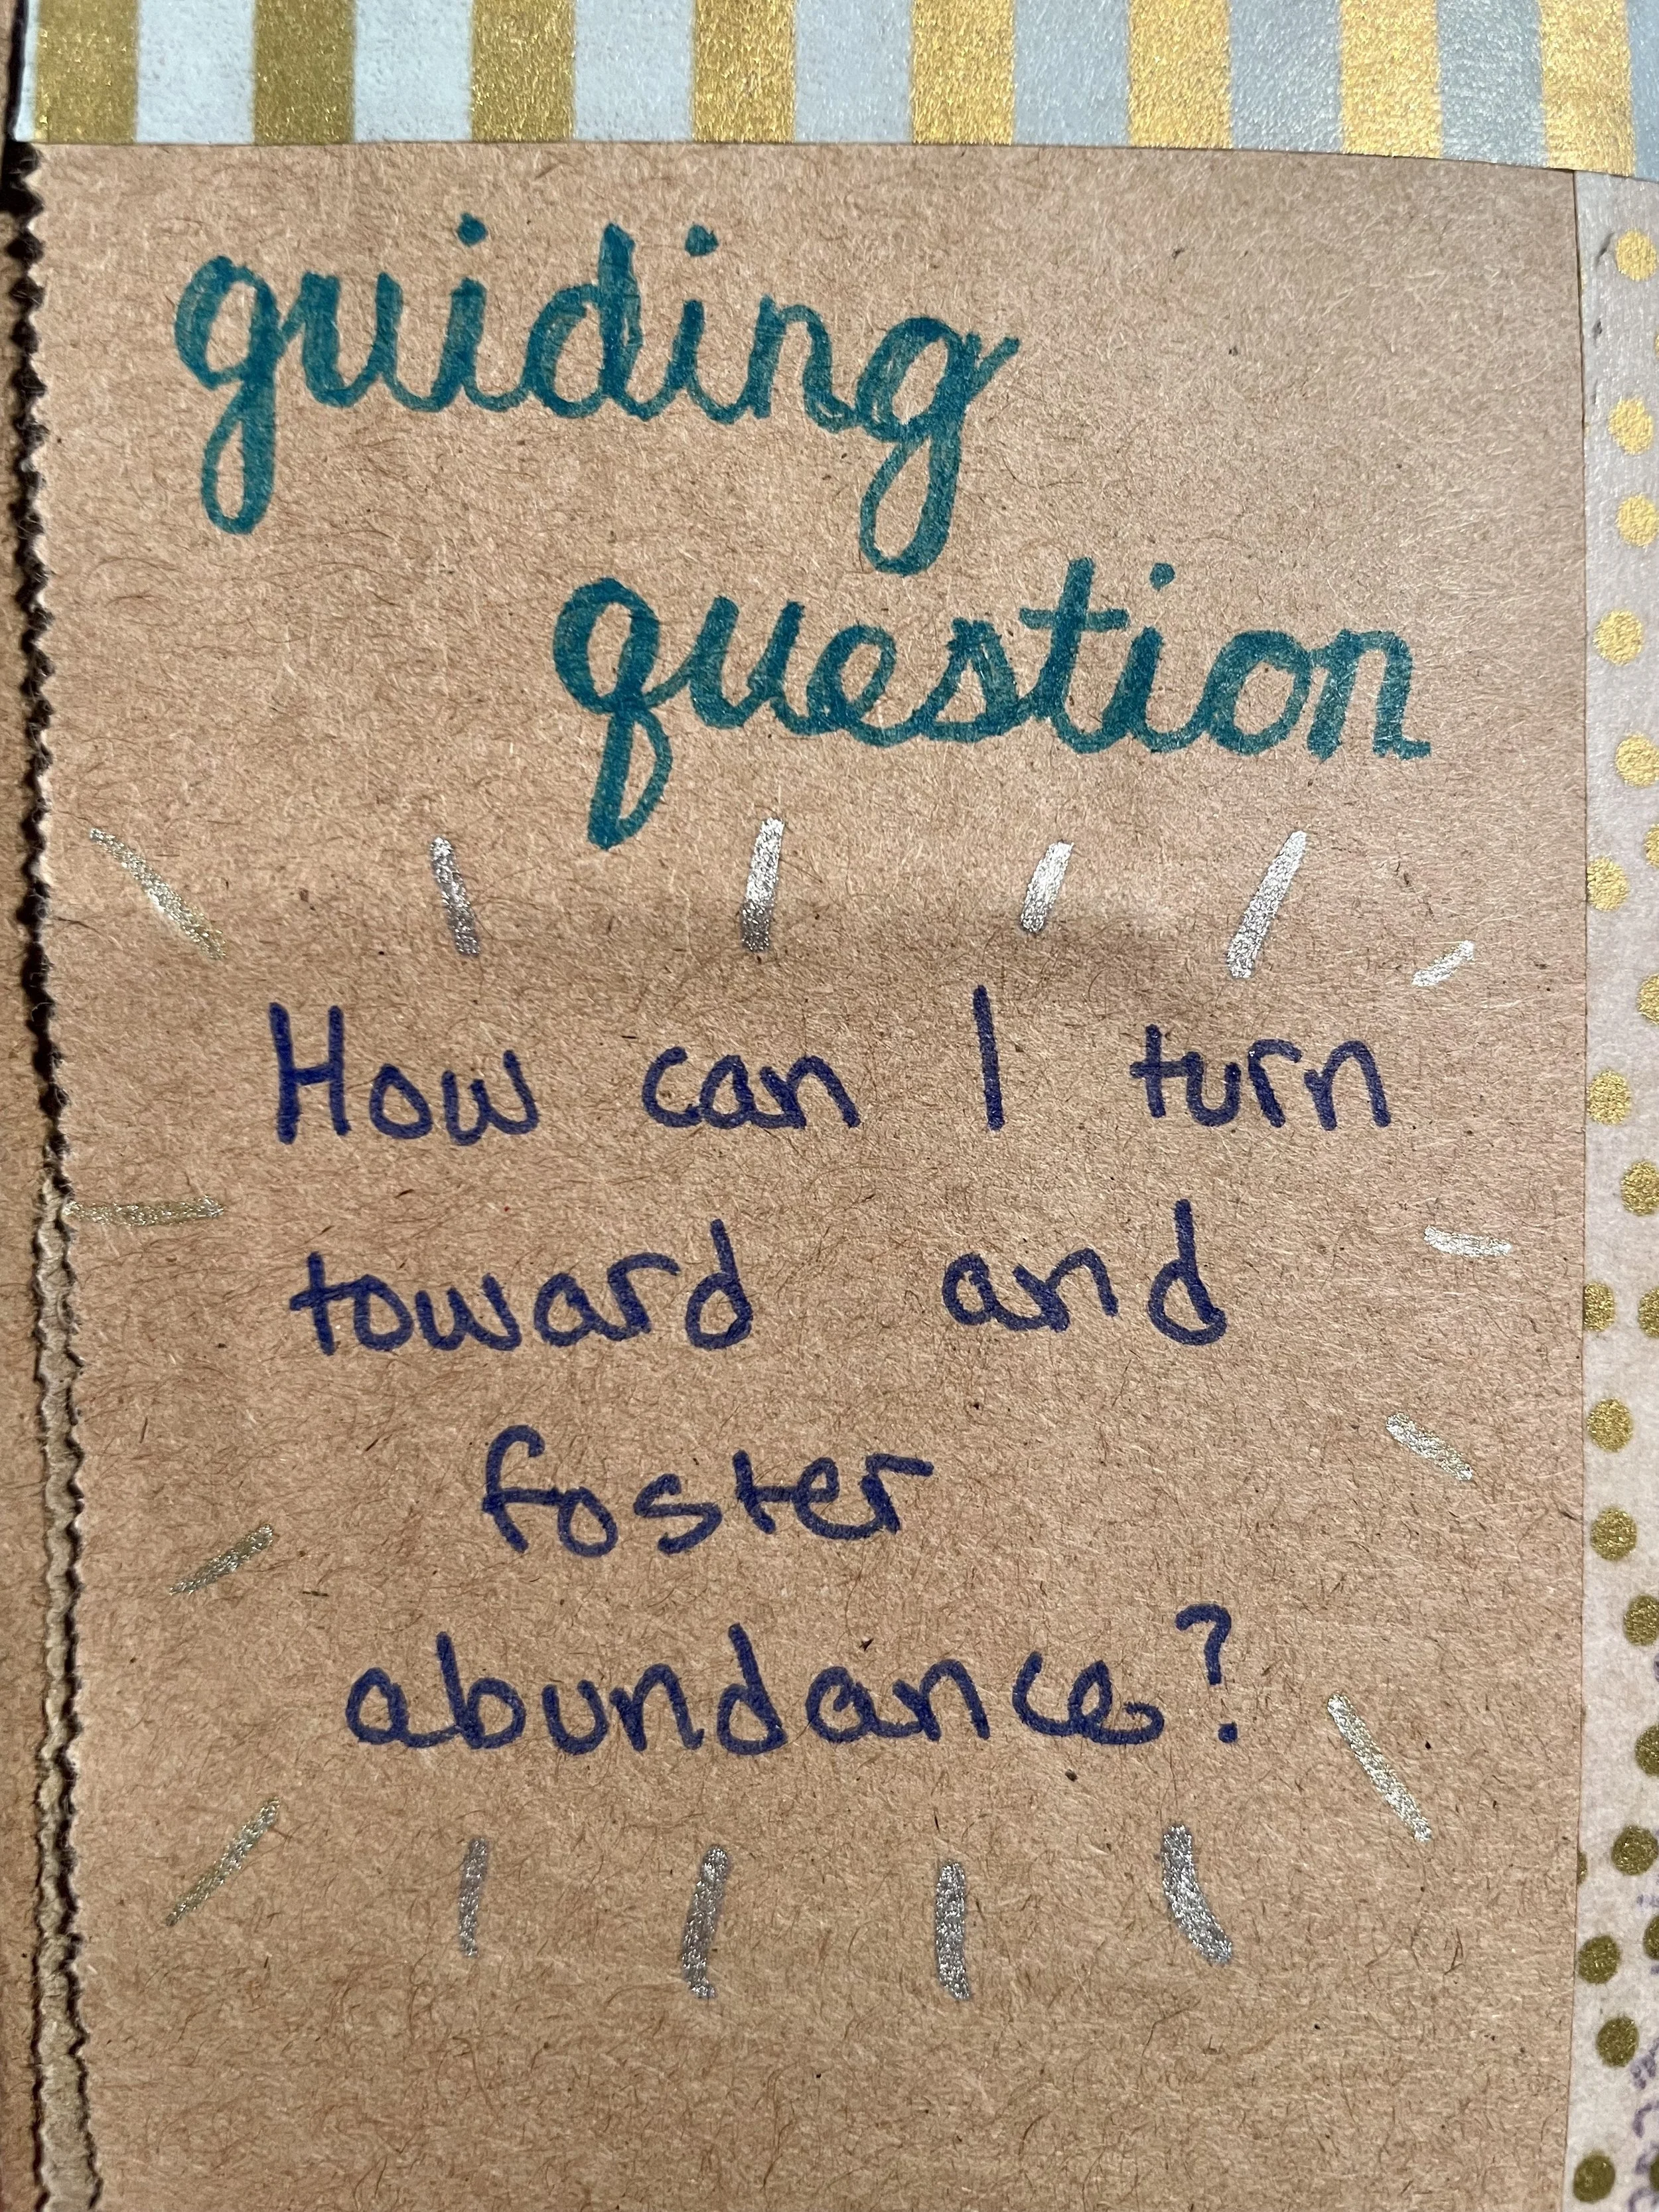 guiding
question
How can I turn
toward and
foster
abundance?